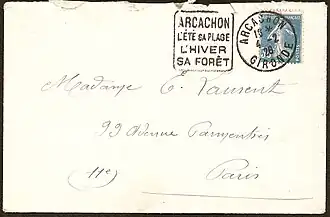 ARCACHON
L'ÉTÉ SA PLAGE
L'HIVER
SA FORÊT
ARCACHON
4 - 2
28
GIRONDE
Madame E. Laurent
99 Avenue Parmentier
(11e)
Paris